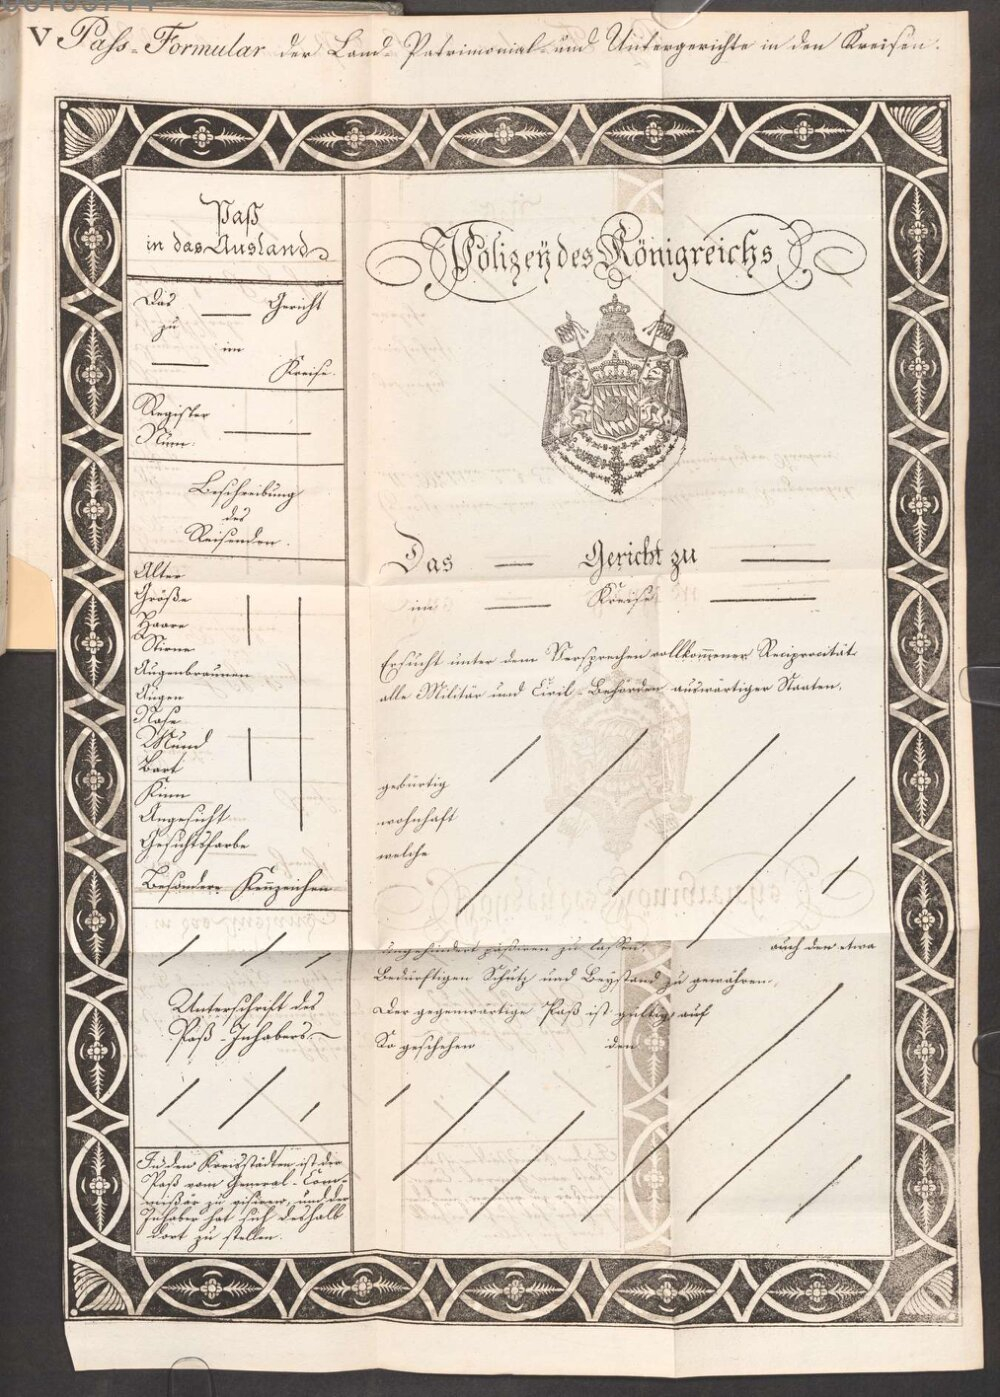 V Pass-Formular der Land- Patrimonial- und Untergerichte in den Kreisen.
Paß
in das Ausland
Das Gericht
zu
im
Kreise.
Register
Num:
Beschreibung
des
Reisenden.
Alter
Größe
Haare
Stirne
Augenbraunen
Augen
Nase
Mund
Bart
Kinn
Angesicht
Gesichtsfarbe
Besondere Kennzeichen
Unterschrift des
Paß-Inhabers
In den Kreisstädten ist der
Paß vom General-Com-
missär zu visiren, und der
Inhaber hat sich deshalb
dort zu stellen.
Polizeÿ des Königreichs
Das Gericht zu
im Kreise
Ersucht unter dem Versprechen vollkommener Reciprocität
alle Militär und Civil-Behörden auswärtiger Staaten,
gebürtig
wohnhaft
welche
ungehindert passiren zu lassen, auch den etwa
Bedürftigen Schutz und Beystand zu gewähren,
Der gegenwärtige Paß ist gültig auf
So geschehen den